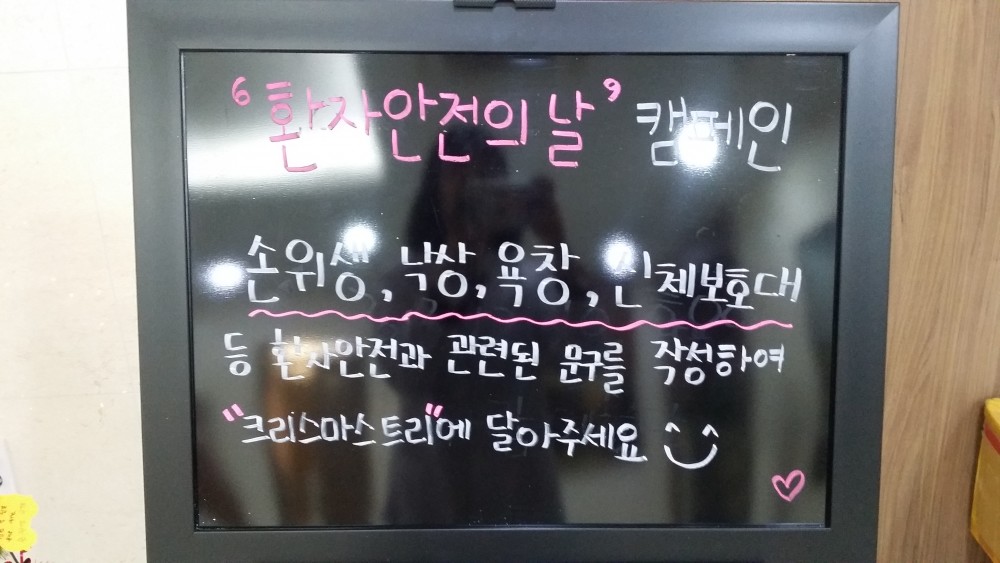 '환자안전의 날' 캠페인
손위생, 낙상, 욕창, 신체보호대
등 환자안전과 관련된 문구를 작성하여
"크리스마스트리"에 달아주세요